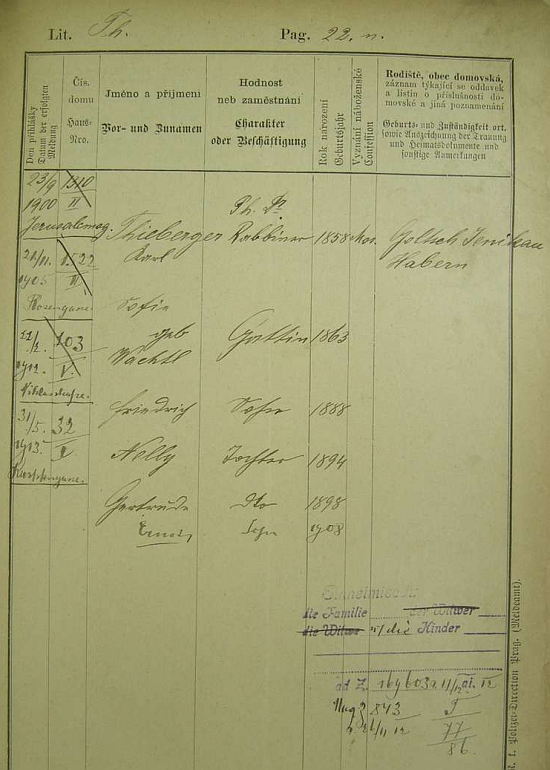 Lit. Th. Pag. 22. n.
Den přihlášky
Datum der erfolgten
Meldung
Čís.
domu
Haus-
Nro.
Jméno a příjmení
Vor- und Zunamen
Hodnost
neb zaměstnání
Charakter
oder Beschäftigung
Rok narození
Geburtsjahr
Vyznání náboženské
Confession
Rodiště, obec domovská,
záznam týkající se oddavek
a listin o příslušnosti do-
movské a jiná poznamenání
Geburts- und Zuständigkeit ort,
sowie Aufzeichnung der Trauung
und Heimatsdokumente und
sonstige Anmerkungen
23/9 1310
1900 II
Ph. Dr
Jerusalemsg. Thieberger Rabbiner 1858 Mos. Goltsch Jenikau
Karl Habern
21/11. 1522
1905 II
Sofie
geb Gattin 1863
Wachtl
103
1912. V.
Friedrich Sohn 1888
31/5. 32
1913. V
Nelly Tochter 1894
Gertrude dto 1898
Ernst Sohn 1908
Einheimisch:
die Familie der Witwer
die Witwe die Kinder
ad Z.
843
77
86
k. k. Polizei-Direction Prag. (Meldeamt).